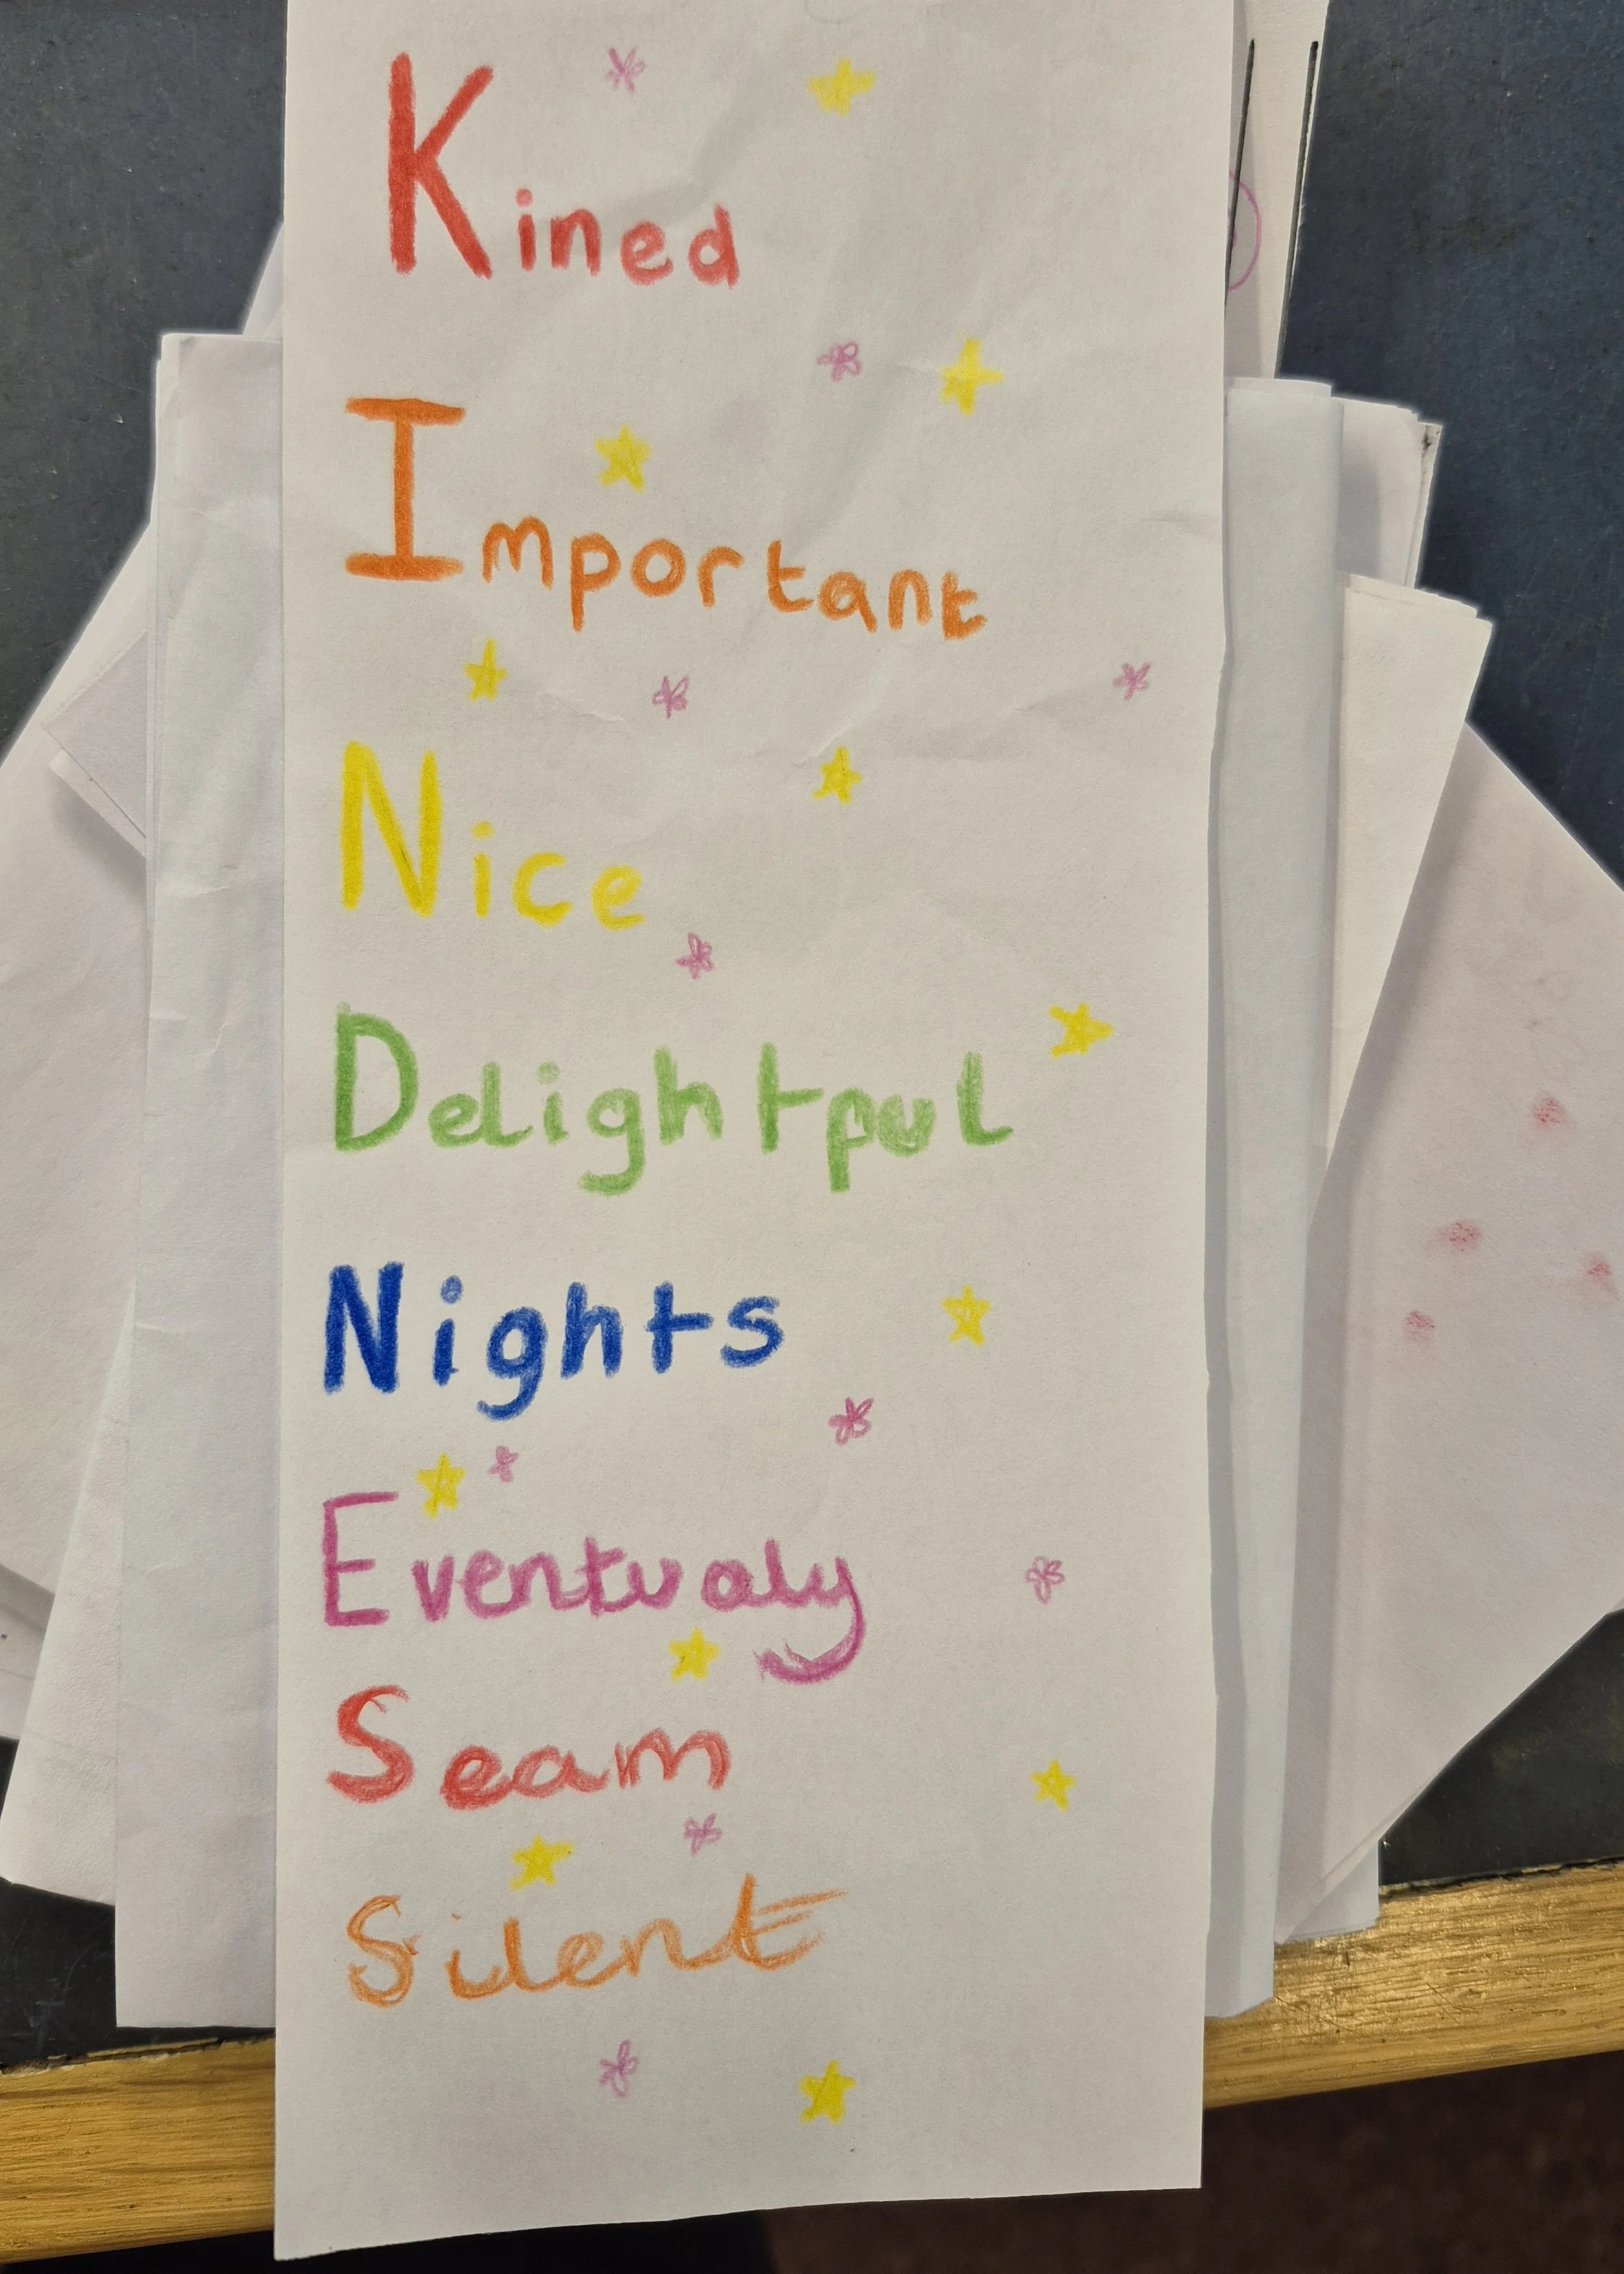 Kined
Important
Nice
Delightpul
Nights
Eventualy
Seam
Silent